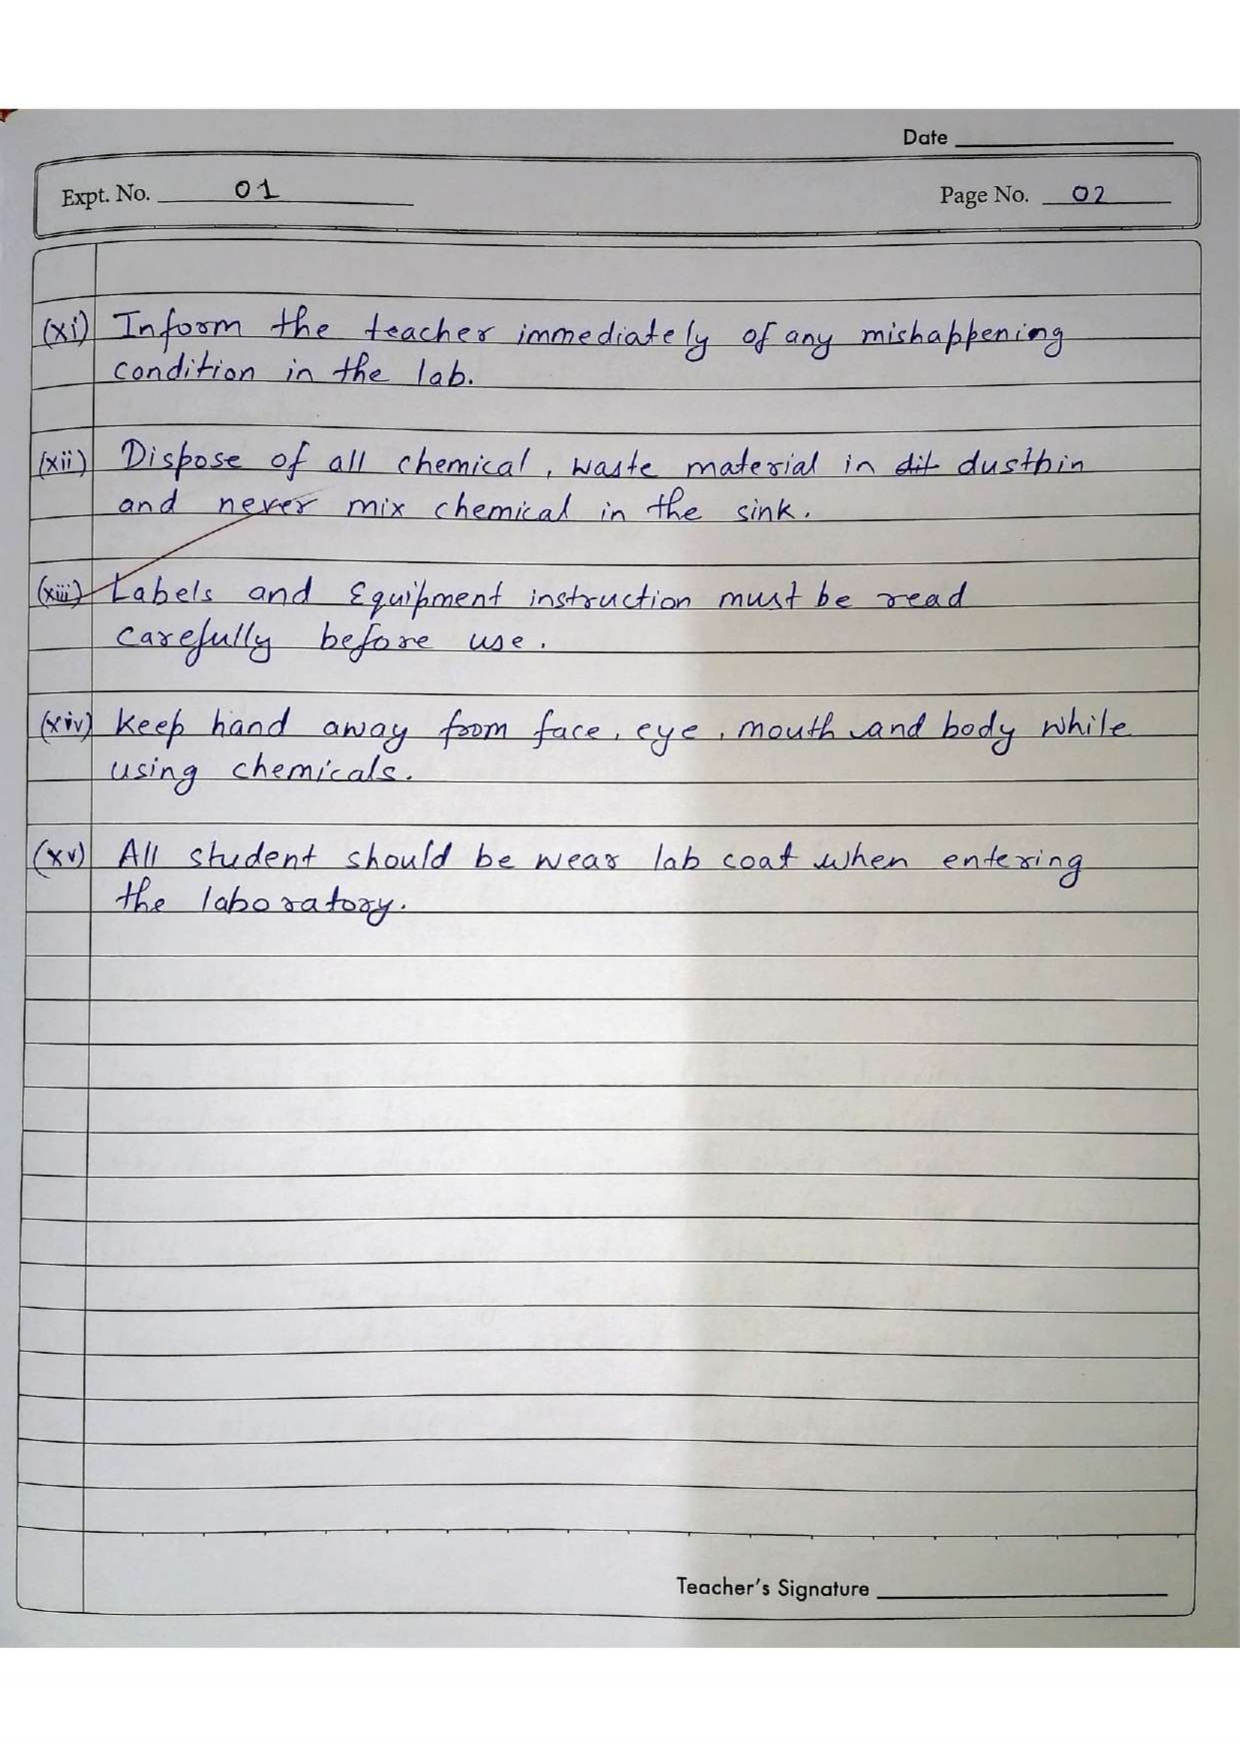 Date
Expt. No. 01
Page No. 02
(xi) Inform the teacher immediately of any mishappening
condition in the lab.
(xii) Dispose of all chemical, waste material in dit dustbin
and never mix chemical in the sink.
(xiii) Labels and Equipment instruction must be read
carefully before use.
(xiv) Keep hand away from face, eye, mouth and body while
using chemicals.
(xv) All student should be wear lab coat when entering
the laboratory.
Teacher's Signature